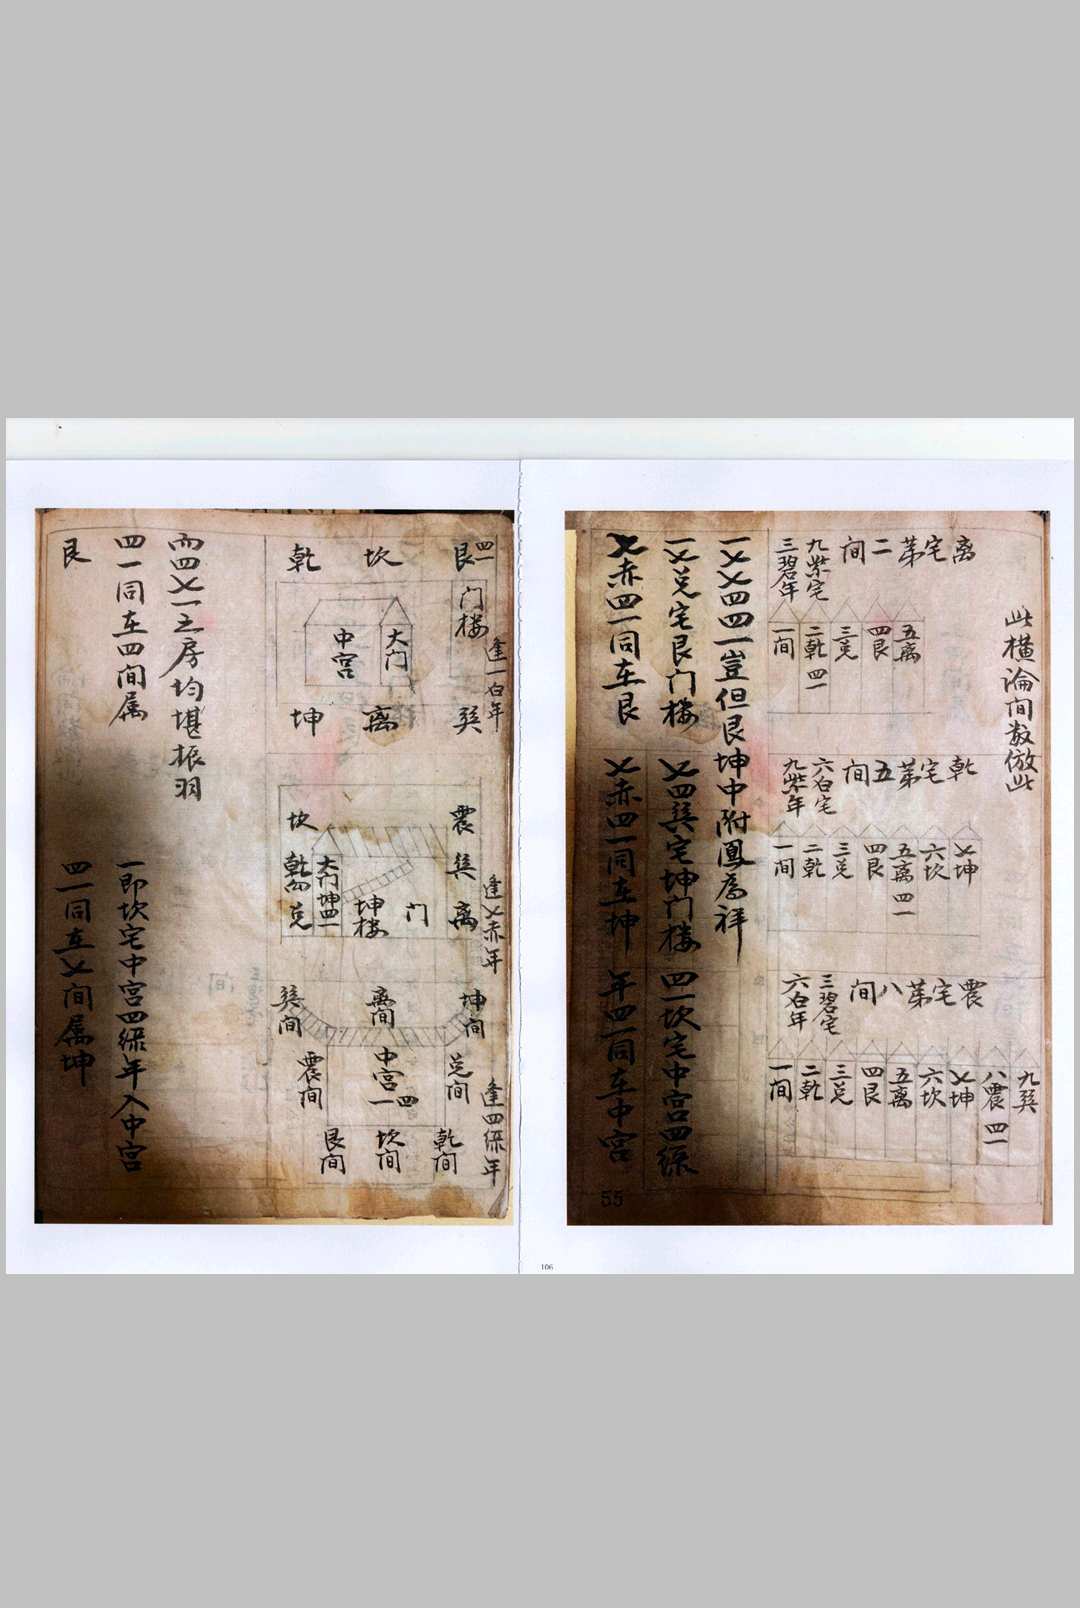 此横論间数倣此
离宅第二间
九紫宅
三碧年
一间
二乾四一
三兑
四艮
五离
乾宅第五间
六白宅
九紫年
一间
二乾
三兑
四艮
五离四一
六坎
七坤
震宅第八间
三碧宅
六白年
一间
二乾
三兑
四艮
五离
六坎
七坤
八震四一
九巽
一七七四四一豈但艮坤中附鳳为祥
一七兑宅艮门楼
七四巽宅坤门楼
四一坎宅中宫四绿
七赤四一同在艮
七赤四一同在坤
年四一同在中宫
55
艮四一
坎
乾
门楼
逢一白年
大门
中宫
巽
离
坤
震
巽
离
坎
乾
兑
大门坤四一
坤楼
门
逢七赤年
坤间
离间
巽间
兑间
中宫四一
震间
乾间
坎间
艮间
逢四绿年
而四七一之房均堪振羽
四一同在四间属
一即坎宅中宫四绿年入中宫
艮
四一同在七间属坤
106